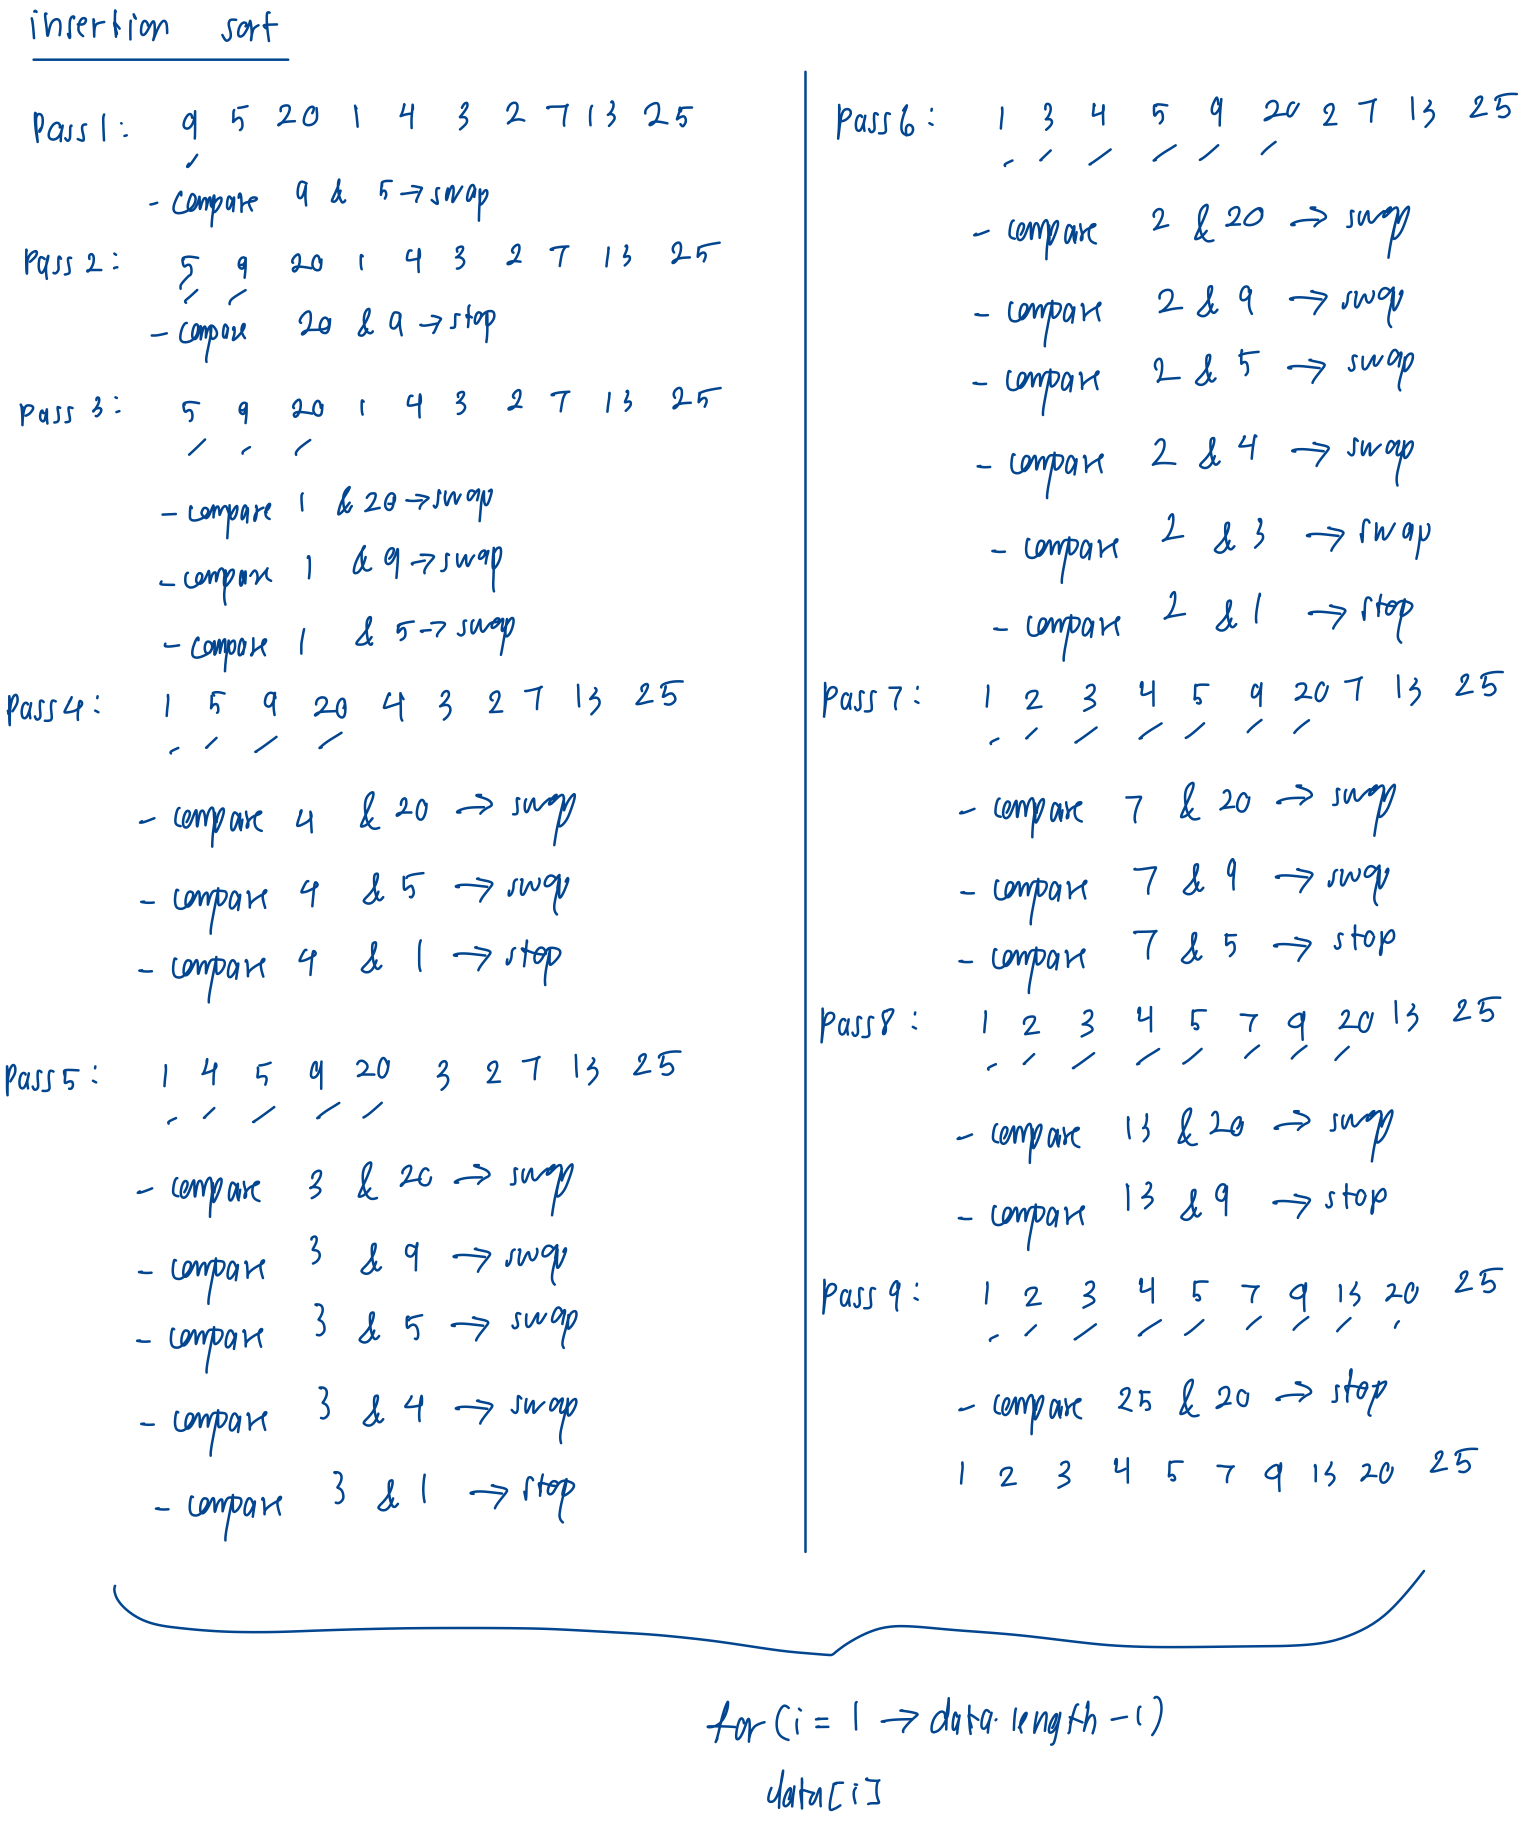 insertion sort
Pass 1: 9 5 20 1 4 3 2 7 13 25
- compare 9 & 5 → swap
Pass 2: 5 9 20 1 4 3 2 7 13 25
- compare 20 & 9 → stop
Pass 3: 5 9 20 1 4 3 2 7 13 25
- compare 1 & 20 → swap
- compare 1 & 9 → swap
- compare 1 & 5 → swap
Pass 4: 1 5 9 20 4 3 2 7 13 25
- compare 4 & 20 → swap
- compare 4 & 5 → swap
- compare 4 & 1 → stop
Pass 5: 1 4 5 9 20 3 2 7 13 25
- compare 3 & 20 → swap
- compare 3 & 9 → swap
- compare 3 & 5 → swap
- compare 3 & 4 → swap
- compare 3 & 1 → stop
Pass 6: 1 3 4 5 9 20 2 7 13 25
- compare 2 & 20 → swap
- compare 2 & 9 → swap
- compare 2 & 5 → swap
- compare 2 & 4 → swap
- compare 2 & 3 → swap
- compare 2 & 1 → stop
Pass 7: 1 2 3 4 5 9 20 7 13 25
- compare 7 & 20 → swap
- compare 7 & 9 → swap
- compare 7 & 5 → stop
Pass 8: 1 2 3 4 5 7 9 20 13 25
- compare 13 & 20 → swap
- compare 13 & 9 → stop
Pass 9: 1 2 3 4 5 7 9 13 20 25
- compare 25 & 20 → stop
1 2 3 4 5 7 9 13 20 25
for (i = 1 → data.length - 1)
data[i]